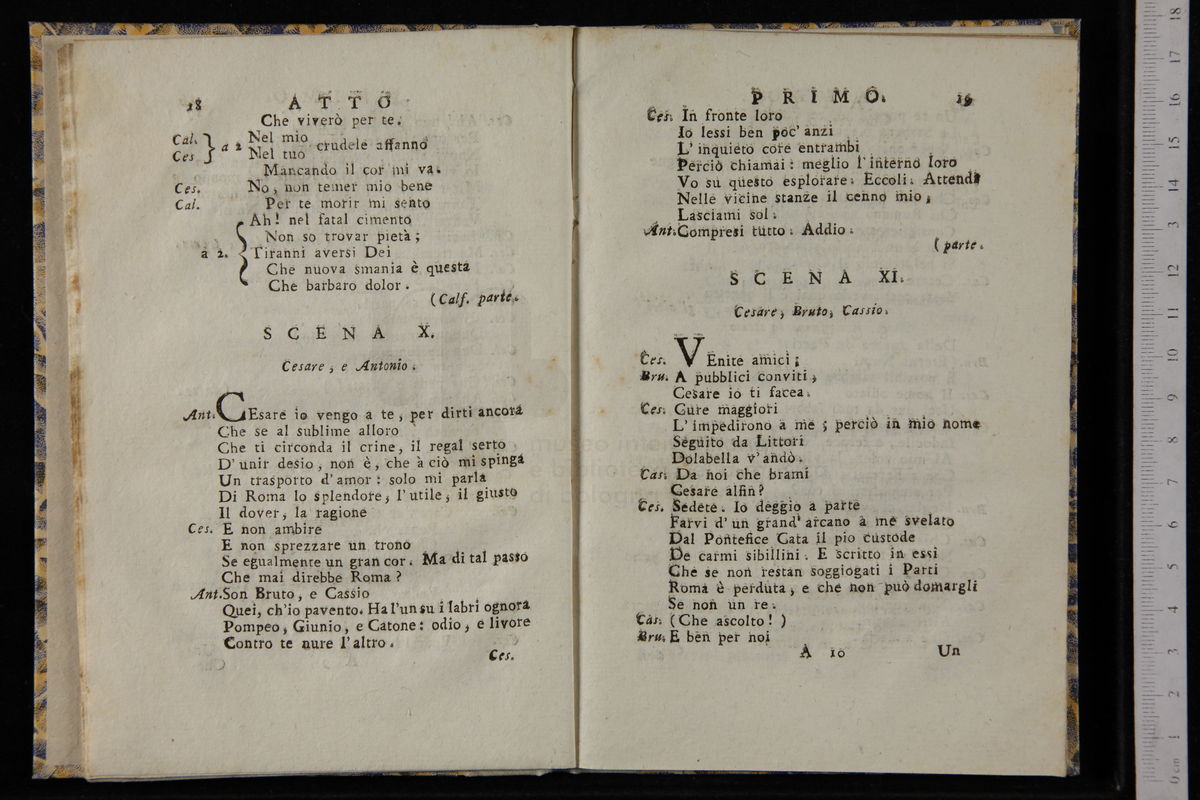 18 ATTO
Che viverò per te.
Cal. Ces } a 2 Nel mio
Nel tuo crudele affanno
Mancando il cor mi va.
Ces. No, non temer mio bene
Cal. Per te morir mi sento
Ah! nel fatal cimento
Non so trovar pietà;
a 2. { Tiranni aversi Dei
Che nuova smania è questa
Che barbaro dolor.
(Calf. parte.
SCENA X.
Cesare, e Antonio.
Ant. CEsare io vengo a te, per dirti ancora
Che se al sublime alloro
Che ti circonda il crine, il regal serto
D'unir desio, non è, che à ciò mi spinga
Un trasporto d'amor: solo mi parla
Di Roma lo splendore, l'utile, il giusto
Il dover, la ragione
Ces. E non ambire
E non sprezzare un trono
Se egualmente un gran cor. Ma di tal passo
Che mai direbbe Roma?
Ant. Son Bruto, e Cassio
Quei, ch'io pavento. Ha l'un su i labri ognora
Pompeo, Giunio, e Catone: odio, e livore
Contro te nure l'altro.
Ces.
PRIMO. 19
Ces. In fronte loro
Io lessi ben poc' anzi
L'inquieto core entrambi
Perciò chiamai: meglio l'interno loro
Vo su questo esplorare. Eccoli. Attendi
Nelle vicine stanze il cenno mio,
Lasciami sol.
Ant. Compresi tutto. Addio.
(parte.
SCENA XI.
Cesare, Bruto, Cassio.
Ces. VEnite amici;
Bru. A pubblici conviti,
Cesare io ti facea.
Ces. Cure maggiori
L'impedirono a me; perciò in mio nome
Seguito da Littori
Dolabella v'andò.
Cas. Da noi che brami
Cesare alfin?
Ces. Sedete. Io deggio a parte
Farvi d'un grand' arcano à me svelato
Dal Pontefice Cata il pio custode
De carmi sibillini. E scritto in essi
Che se non restan soggiogati i Parti
Roma è perduta, e che non può domargli
Se non un re.
Cas. (Che ascolto!)
Bru. E ben per noi
A 10 Un